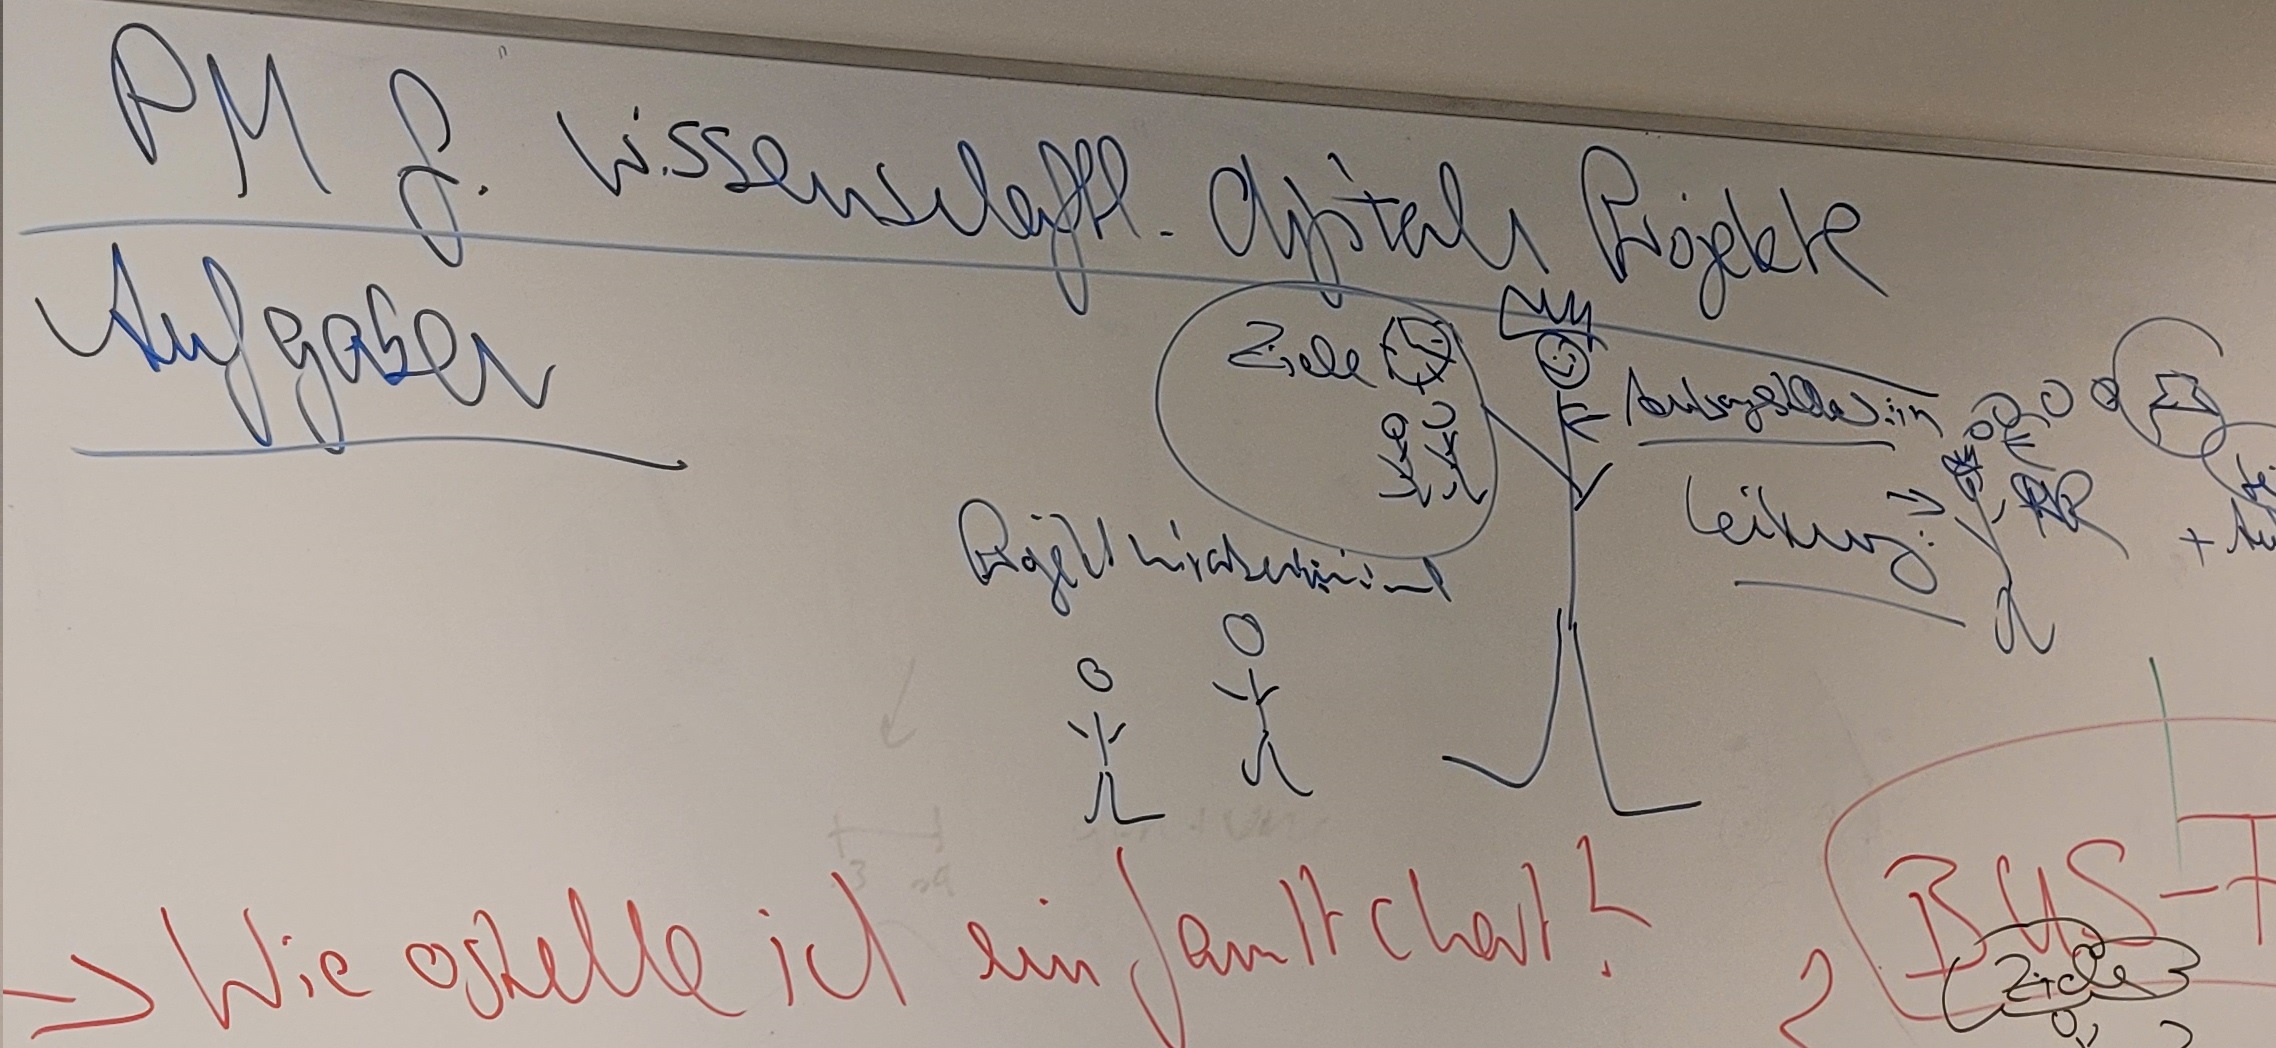 PM f. wissenschaftl. digitale Projekte
Aufgaben
Ziele
Auftraggeber:in
Leitung:
Projektmitarbeiter:innen
→ Wie erstelle ich ein Ganttchart?
BUS-T
Ziele